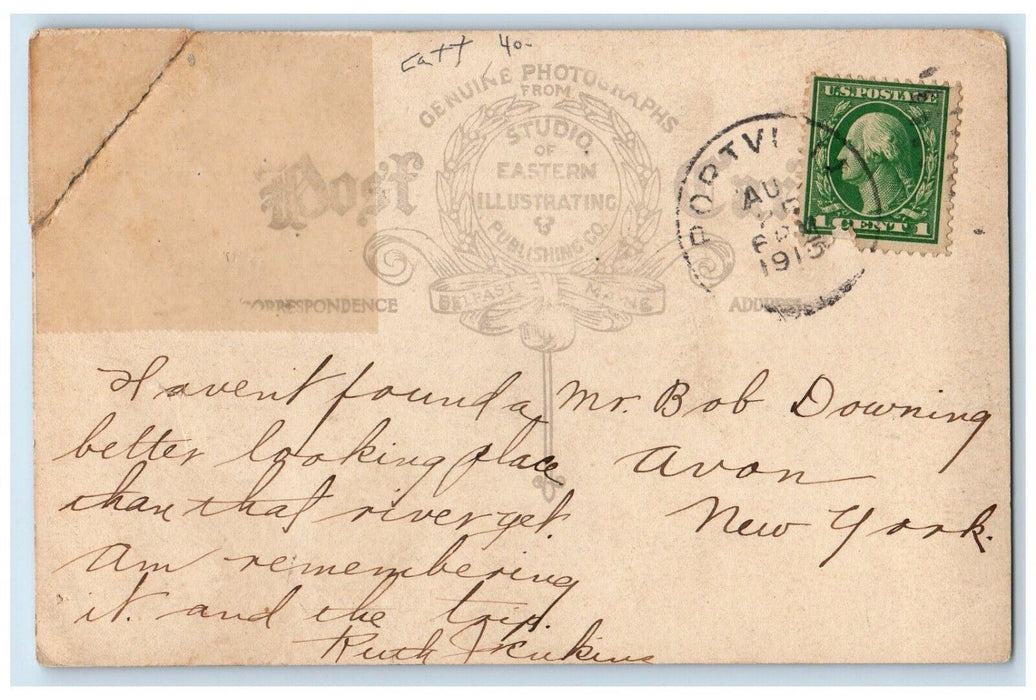 Catt 40-
GENUINE PHOTOGRAPHS
FROM
STUDIO
OF
EASTERN
ILLUSTRATING
&
PUBLISHING CO.
BELFAST MAINE
Post
CORRESPONDENCE
ADDRESS
U.S. POSTAGE
1 CENT 1
PORTVI
AUG
6 PM
1913
Haven't found a
better looking place
than that river yet.
Am remembering
it. and the trip.
Ruth Jenkins
Mr. Bob Downing
Avon
New York.